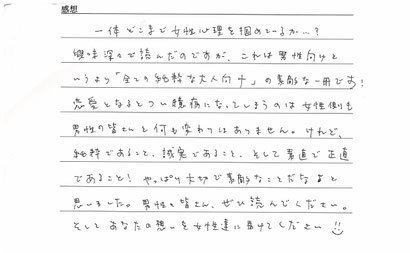 感想
一体どこまで女性心理を掴めているか…?
興味深々で読んだのですが、これは男性向けと
いうより「全ての純粋な大人向け」の素敵な一冊です!
恋愛となるとつい臆病になってしまうのは女性側も
男性の皆さんと何も変わりはありません。けれど、
純粋であること、誠実であること、そして素直で正直
であること!やっぱり大切で素敵なことだなぁと
思いました。男性の皆さん、ぜひ読んでください。
そしてあなたの想いを女性達に届けてください